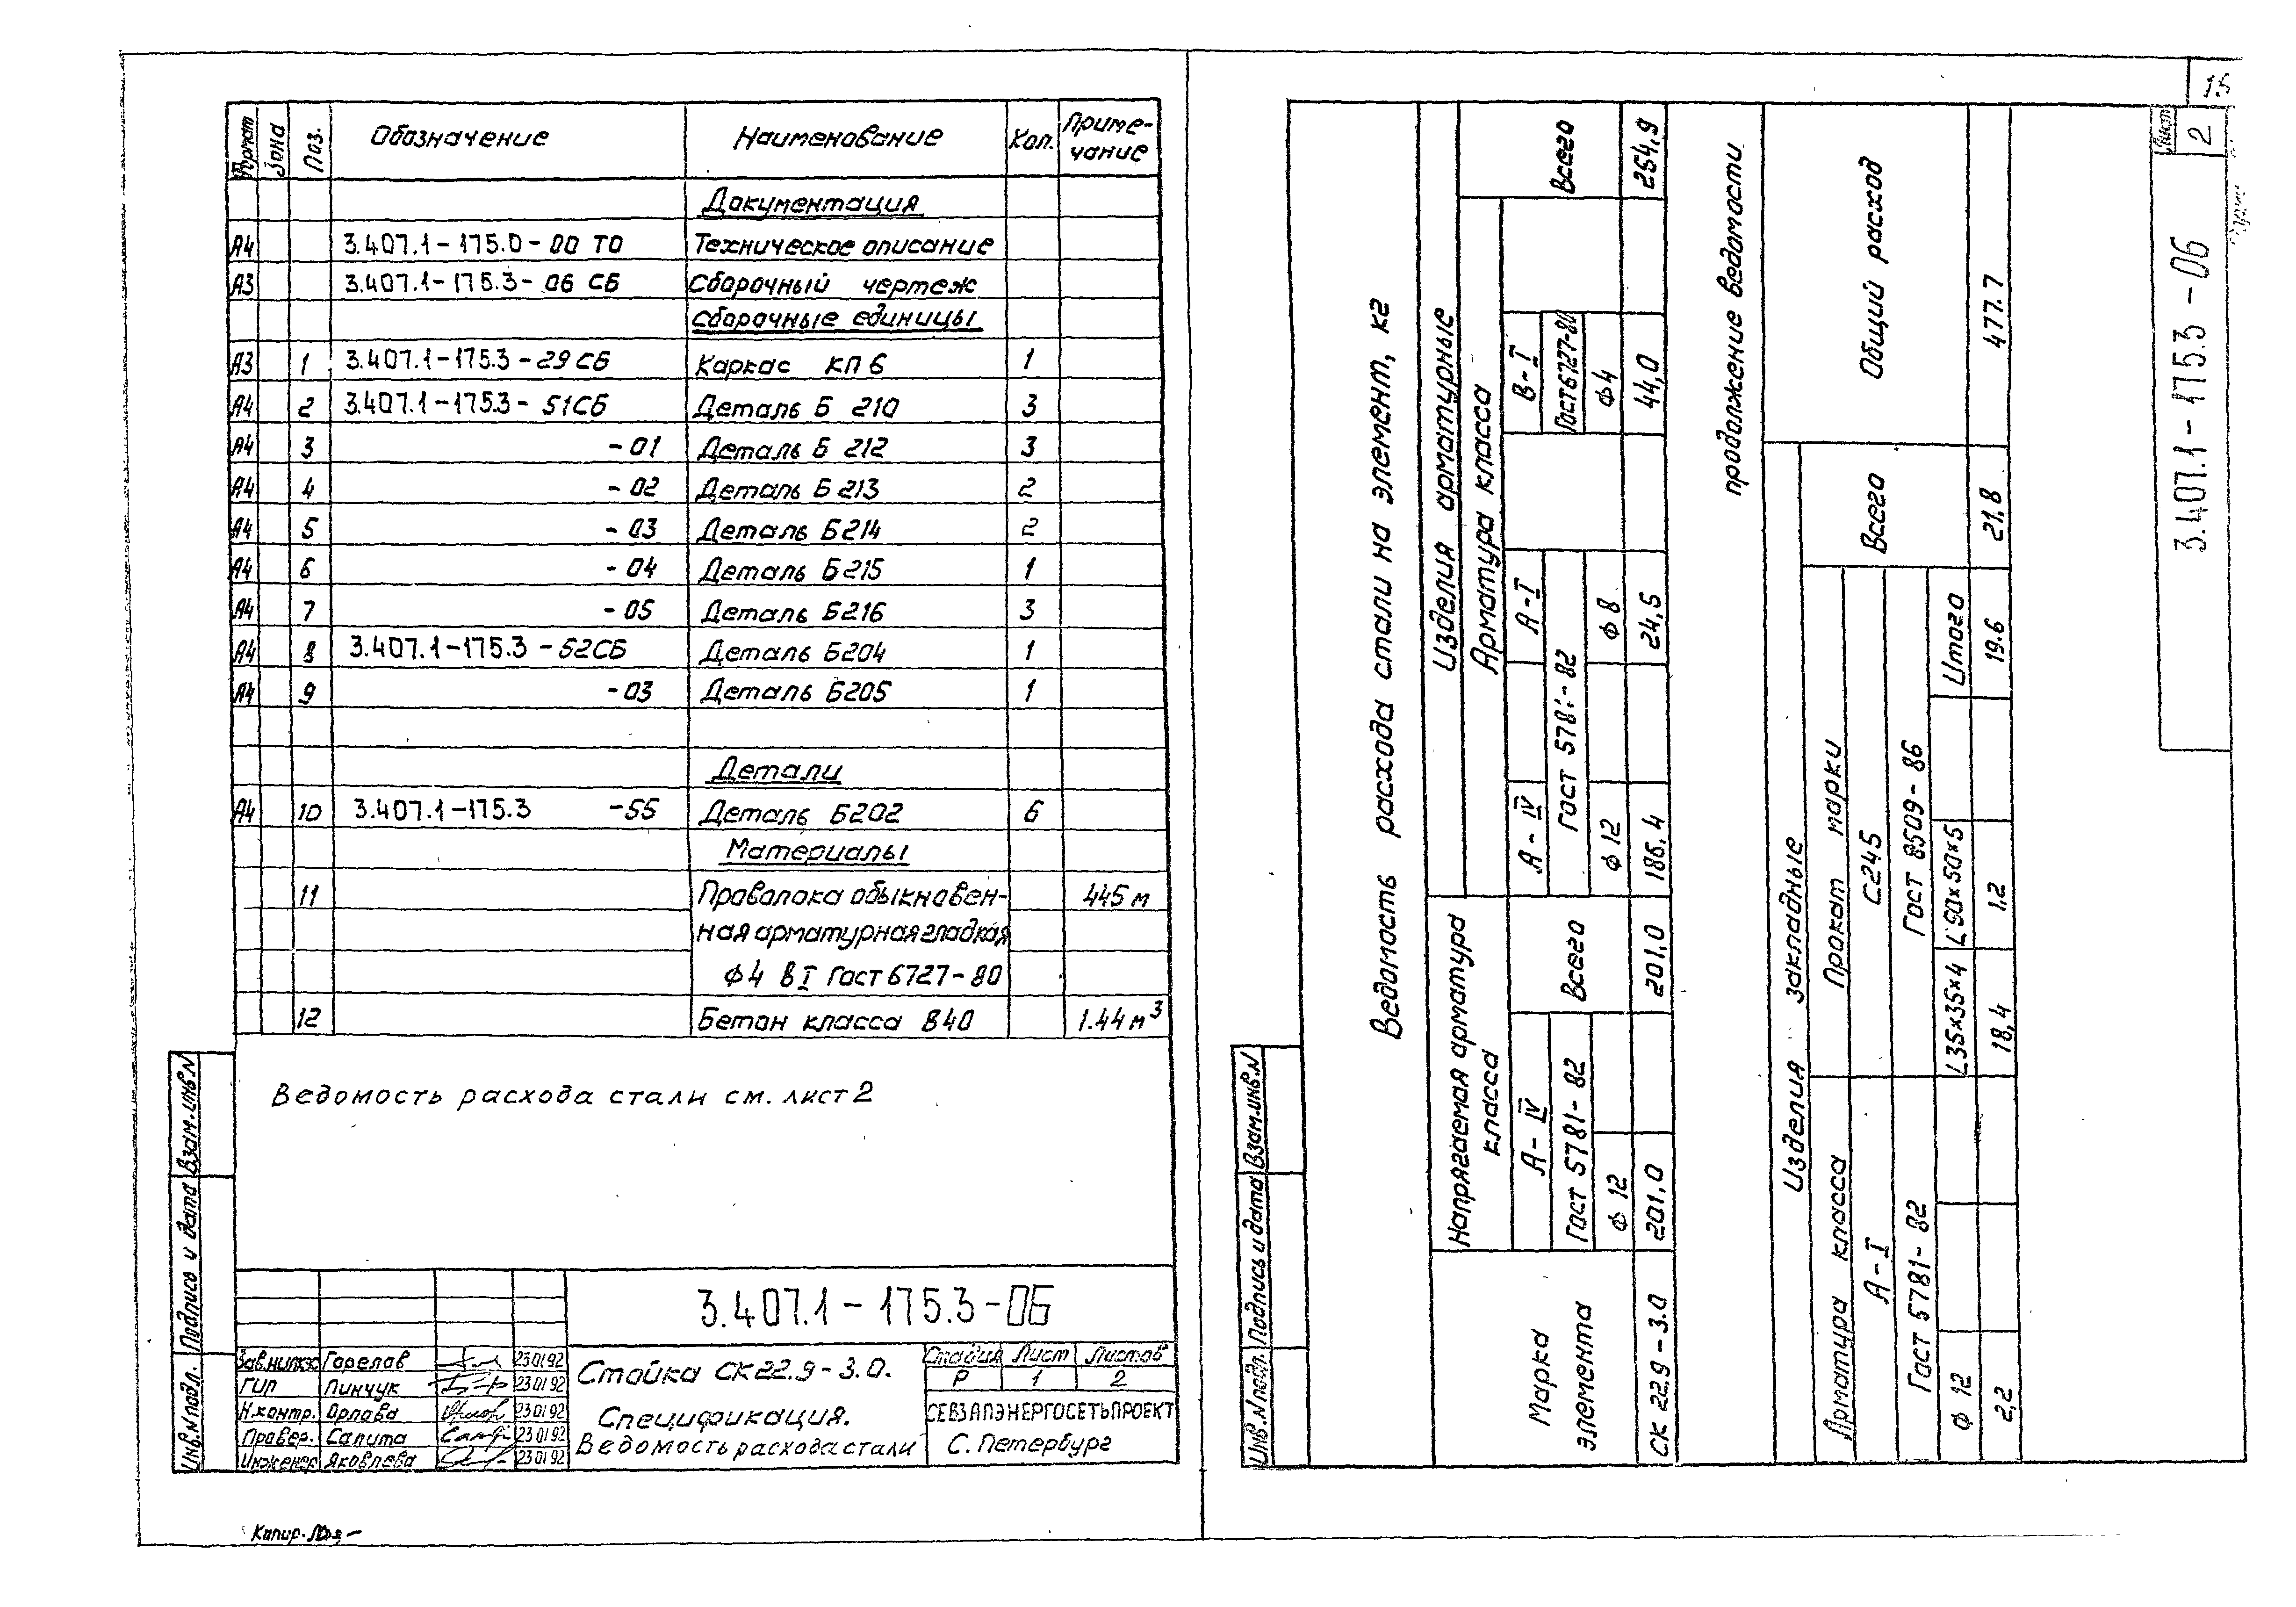 Формат Зона Поз. Обозначение Наименование Кол. Приме-
чание
Документация
А4 3.407.1-175.0-00 ТО Техническое описание
А3 3.407.1-175.3-06 СБ Сборочный чертеж
Сборочные единицы
А3 1 3.407.1-175.3-29 СБ Каркас КП 6 1
А4 2 3.407.1-175.3-51СБ Деталь Б 210 3
А4 3 -01 Деталь Б 212 3
А4 4 -02 Деталь Б 213 2
А4 5 -03 Деталь Б214 2
А4 6 -04 Деталь Б215 1
А4 7 -05 Деталь Б216 3
А4 8 3.407.1-175.3-52СБ Деталь Б204 1
А4 9 -03 Деталь Б205 1
Детали
А4 10 3.407.1-175.3 -55 Деталь Б202 6
Материалы
11 Проволока обыкновен- 445 м
ная арматурная гладкая
Ф4 ВI Гост 6727-80
12 Бетон класса В40 1.44 м³
Ведомость расхода стали см. лист 2
Взам.инв.N
Подпись и дата
Инв.N подл.
3.407.1-175.3-06
Горелов 23 01 92
ГИП Пинчук 23 01 92
Н.контр. Орлова 23 01 92
Провер. Салита 23 01 92
Инженер Яковлева 23 01 92
Стойка СК 22.9-3.0.
Спецификация.
Ведомость расхода стали
Стадия Лист Листов
Р 1 2
СЕВЗАПЭНЕРГОСЕТЬПРОЕКТ
С. Петербург
Копир.
15
Лист
2
3.407.1-175.3-06
Ведомость расхода стали на элемент, кг
Марка
элемента
Напрягаемая арматура
класса
Изделия арматурные
Арматура класса
А-IV
Гост 5781-82
Ф 12
Всего
А-IV А-I В-I
Гост 5781-82 Гост 6727-80
Ф 12 Ф 8 Ф4
Всего
СК 22.9-3.0 201,0 201,0 186,4 24,5 44,0 254,9
продолжение ведомости
Изделия закладные
Общий расход
Арматура класса Прокат марки Всего
А-I С245
Гост 5781-82 Гост 8509-86
Ф 12 L35×35×4 L50×50×5 Итого
2,2 18,4 1,2 19.6 21,8 477.7
Взам.инв.N
Подпись и дата
Инв.N подл.